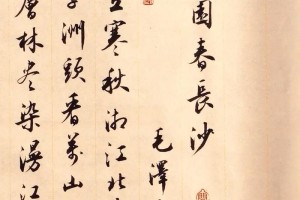 園春長沙
毛澤
立寒秋湘江北
子洲頭看萬山
層林尽染漫江